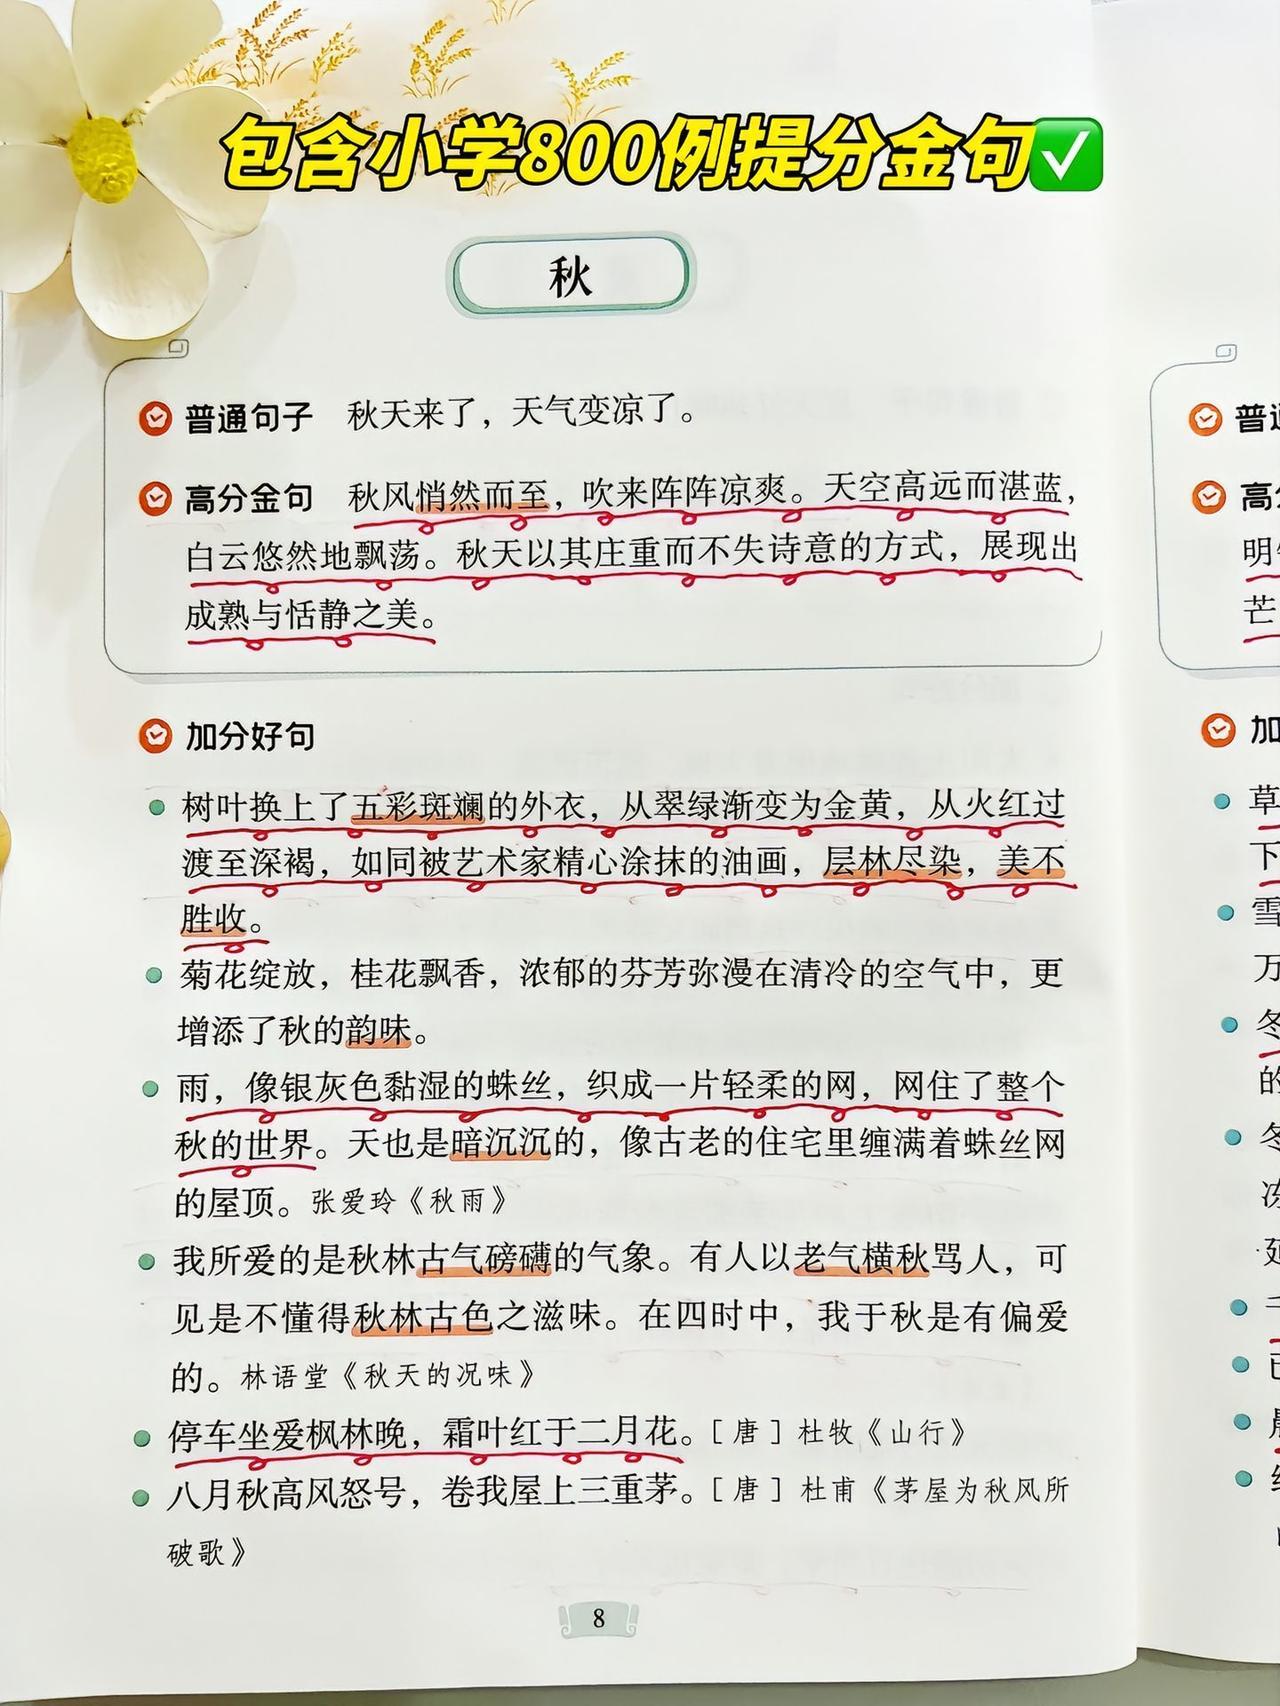 包含小学800例提分金句
秋
普通句子 秋天来了，天气变凉了。
高分金句 秋风悄然而至，吹来阵阵凉爽。天空高远而湛蓝，
白云悠然地飘荡。秋天以其庄重而不失诗意的方式，展现出
成熟与恬静之美。
加分好句
树叶换上了五彩斑斓的外衣，从翠绿渐变为金黄，从火红过
渡至深褐，如同被艺术家精心涂抹的油画，层林尽染，美不
胜收。
菊花绽放，桂花飘香，浓郁的芬芳弥漫在清冷的空气中，更
增添了秋的韵味。
雨，像银灰色黏湿的蛛丝，织成一片轻柔的网，网住了整个
秋的世界。天也是暗沉沉的，像古老的住宅里缠满着蛛丝网
的屋顶。张爱玲《秋雨》
我所爱的是秋林古气磅礴的气象。有人以老气横秋骂人，可
见是不懂得秋林古色之滋味。在四时中，我于秋是有偏爱
的。林语堂《秋天的况味》
停车坐爱枫林晚，霜叶红于二月花。［唐］杜牧《山行》
八月秋高风怒号，卷我屋上三重茅。［唐］杜甫《茅屋为秋风所
破歌》
8
普
高
明
芒
加
草
下
雪
万
冬
的
冬